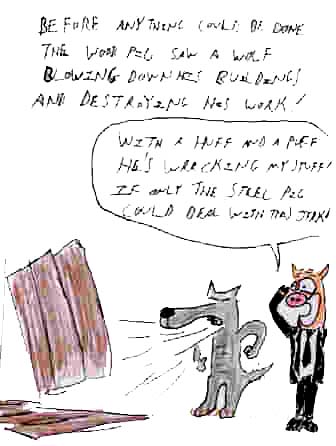 BEFORE ANYTHING COULD BE DONE
THE WOOD PIG SAW A WOLF
BLOWING DOWN HIS BUILDINGS
AND DESTROYING HIS WORK!
WITH A HUFF AND A PUFF
HE'S WRECKING MY STUFF!
IF ONLY THE STEEL PIG
COULD DEAL WITH THIS JERK!